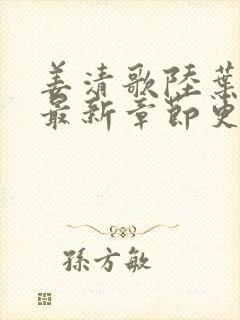 姜清歌陸葉
最新章節更
孫方敏